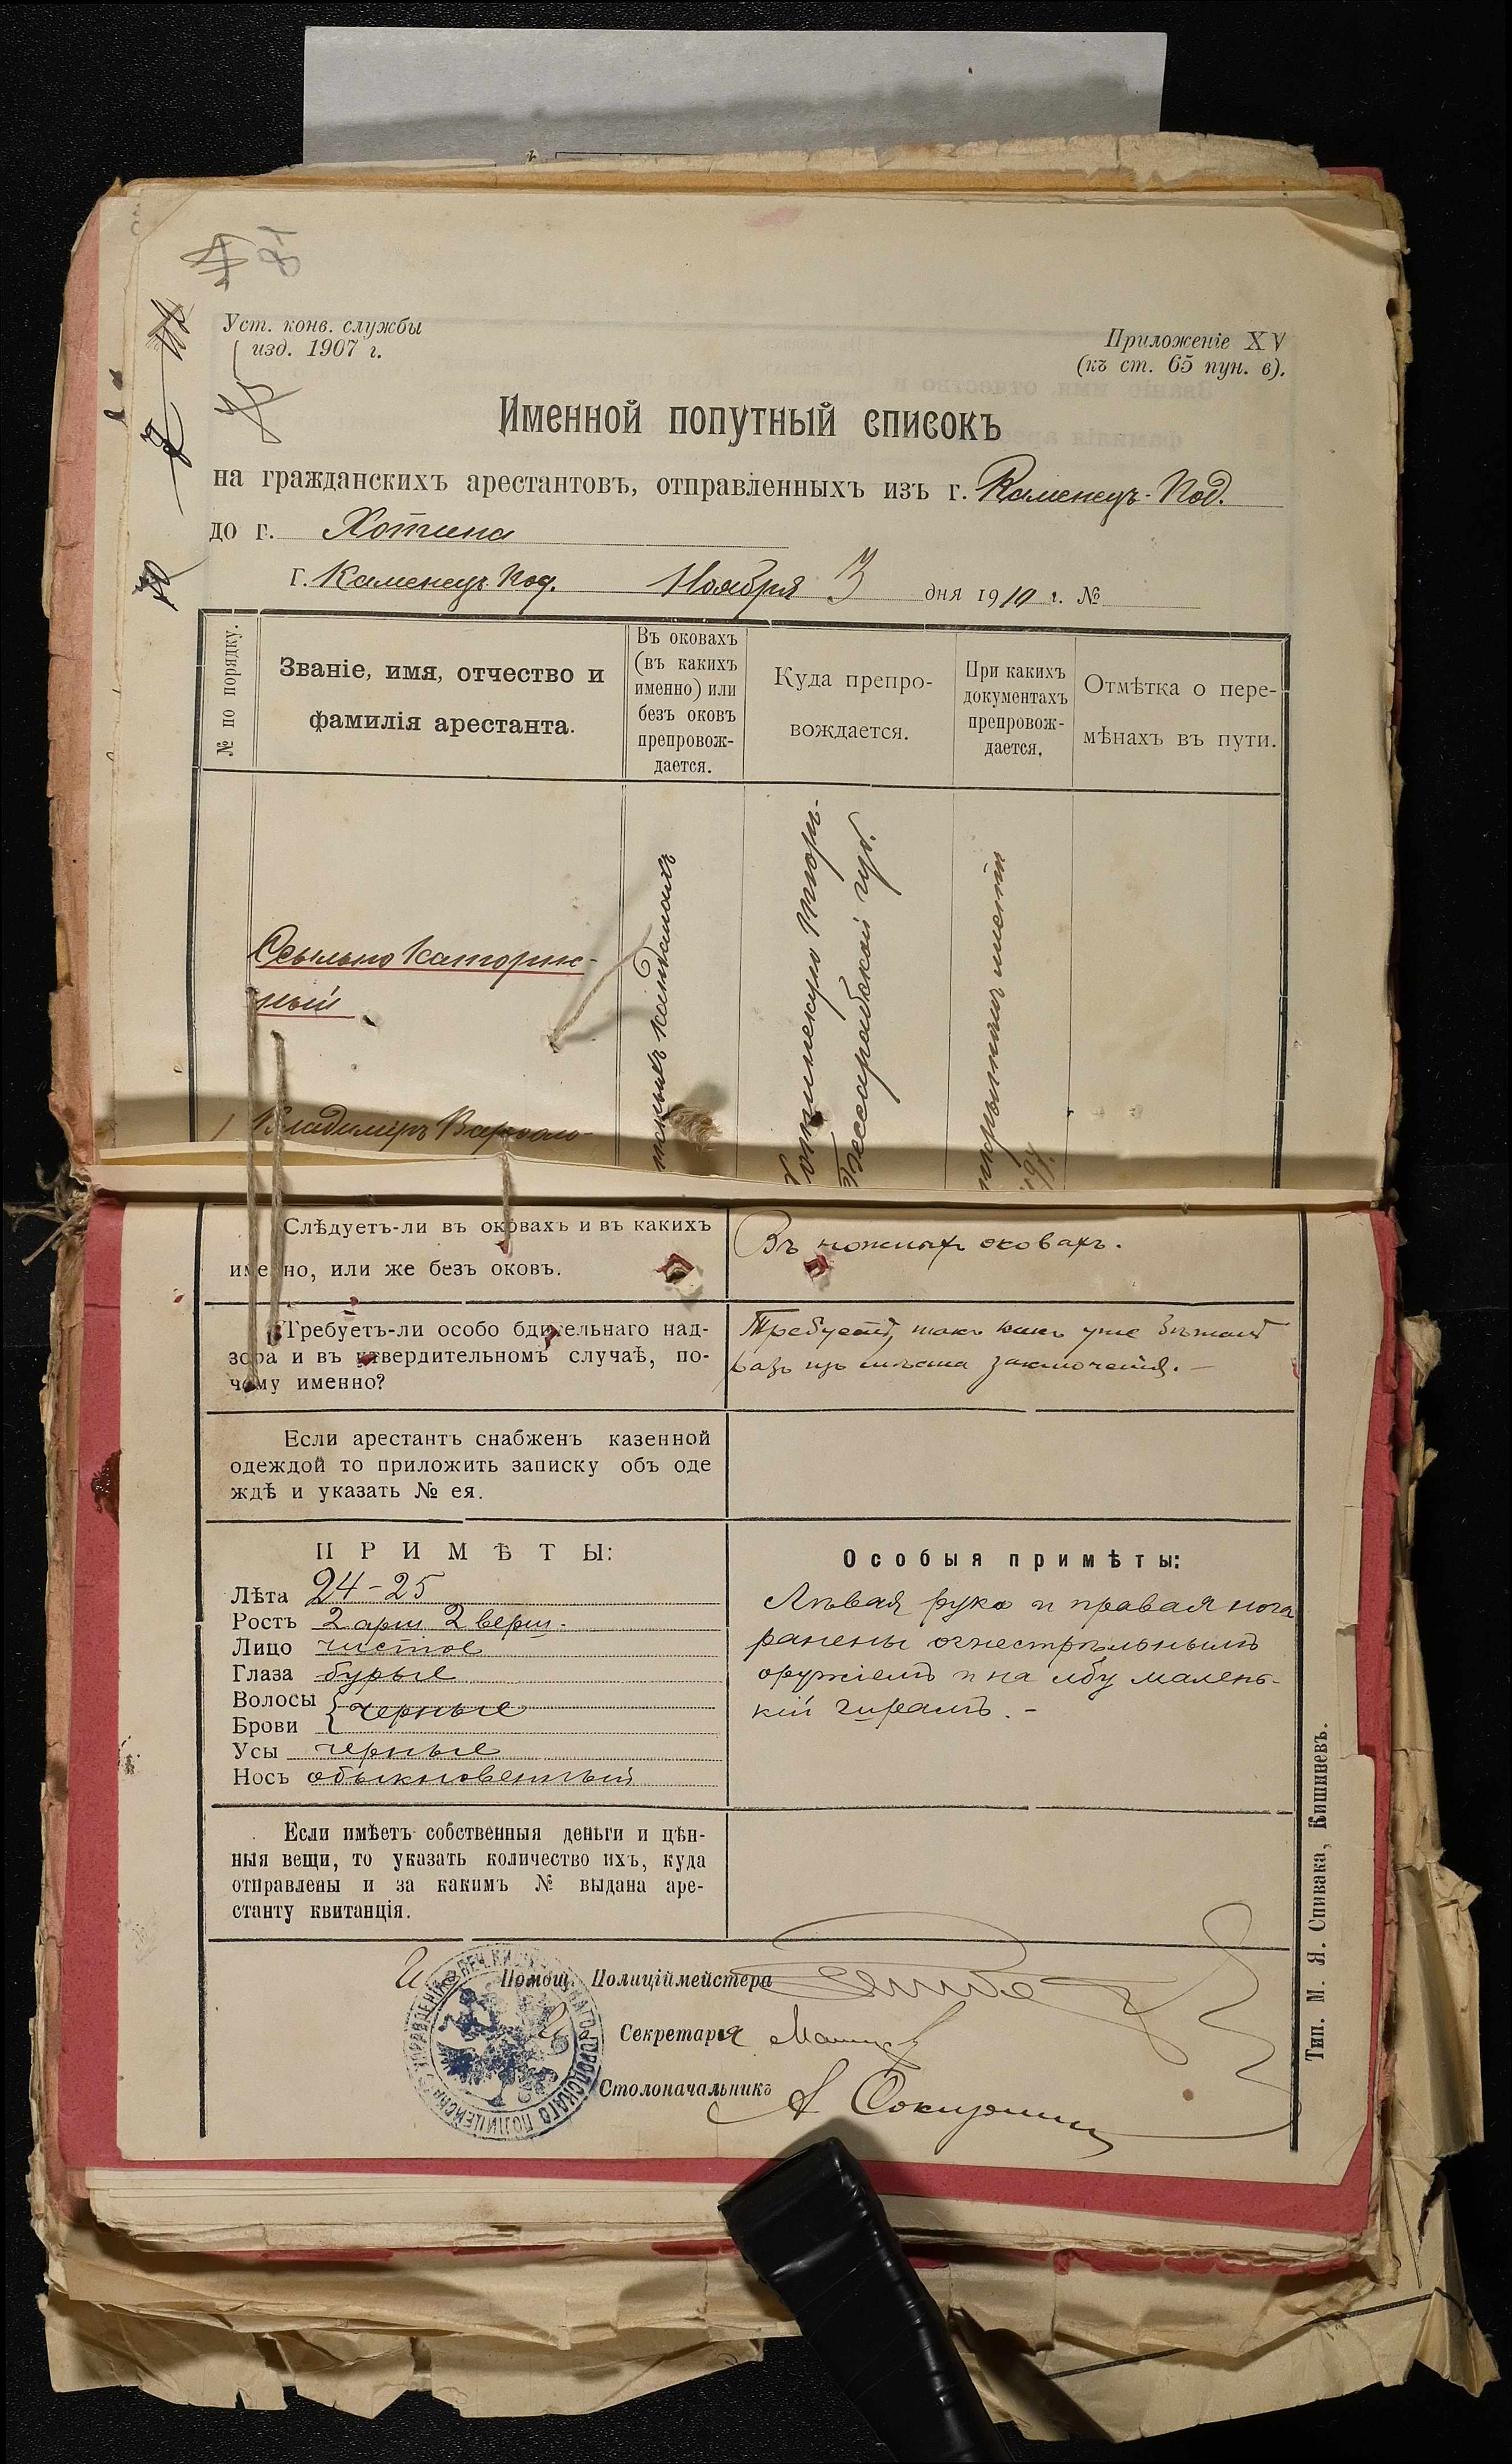 Уст. конв. службы
изд. 1907 г.
Приложеніе XV
(къ ст. 65 пун. в).
Именной попутный списокъ
на гражданскихъ арестантовъ, отправленныхъ изъ г. Каменецъ-Под.
до г. Хотина
Г. Каменецъ Под. Ноября 3 дня 1910 г. №
№ по порядку.
Званіе, имя, отчество и
фамилія арестанта.
Въ оковахъ
(въ какихъ
именно) или
безъ оковъ
препровож-
дается.
Куда препро-
вождается.
При какихъ
документахъ
препровож-
дается.
Отмѣтка о пере-
мѣнахъ въ пути.
Ссыльно Каторж-
ный
Владимиръ
кандалахъ
Хотинскую тюрь-
Бессарабской губ.
Слѣдуетъ-ли въ оковахъ и въ какихъ
именно, или же безъ оковъ.
Въ ножныхъ оковахъ.
Требуетъ-ли особо бдительнаго над-
зора и въ утвердительномъ случаѣ, по-
чему именно?
Требуетъ, такъ какъ уже бѣжалъ
разъ изъ мѣста заключенія. —
Если арестантъ снабженъ казенной
одеждой то приложить записку объ оде
ждѣ и указать № ея.
ПРИМѢТЫ:
Лѣта 24-25
Ростъ 2 арш 2 верш.
Лицо чистое
Глаза бурые
Волосы
Брови черные
Усы черные
Носъ обыкновенный
Особыя примѣты:
Лѣвая рука и правая нога
ранены огнестрѣльнымъ
оружіемъ и на лбу малень-
кій шрамъ. —
Если имѣетъ собственныя деньги и цѣн-
ныя вещи, то указать количество ихъ, куда
отправлены и за какимъ № выдана аре-
станту квитанція.
Помощ. Полиціймейстера
Секретаря
Столоначальникъ
ГОРОДСКАГО ПОЛИЦЕЙСК УПРАВЛЕНІЯ
Тип. М. Я. Спивака, Кишиневъ.